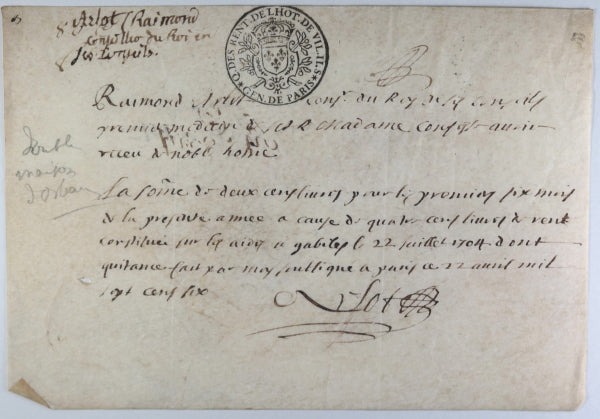 Arlot Raimond
Conseiller du Roi en
ses Conseils
Q. DES RENT. DE L'HOT. DE VIL. TIL. S
GEN. DE PARIS
Raimond Arlot cons.r du Roy de ses conseils
premier medecin de Madame confesse avoir
receu de noble home
La some de deux cens livres pour les premiers six mois
de la presente annee a cause de quatre cens livres de rente
constituée sur les aides et gabelles le 22 juillet 1704 dont
quitance fait par moy soussigne a paris ce 22 avril mil
sept cens six
Arlot
double